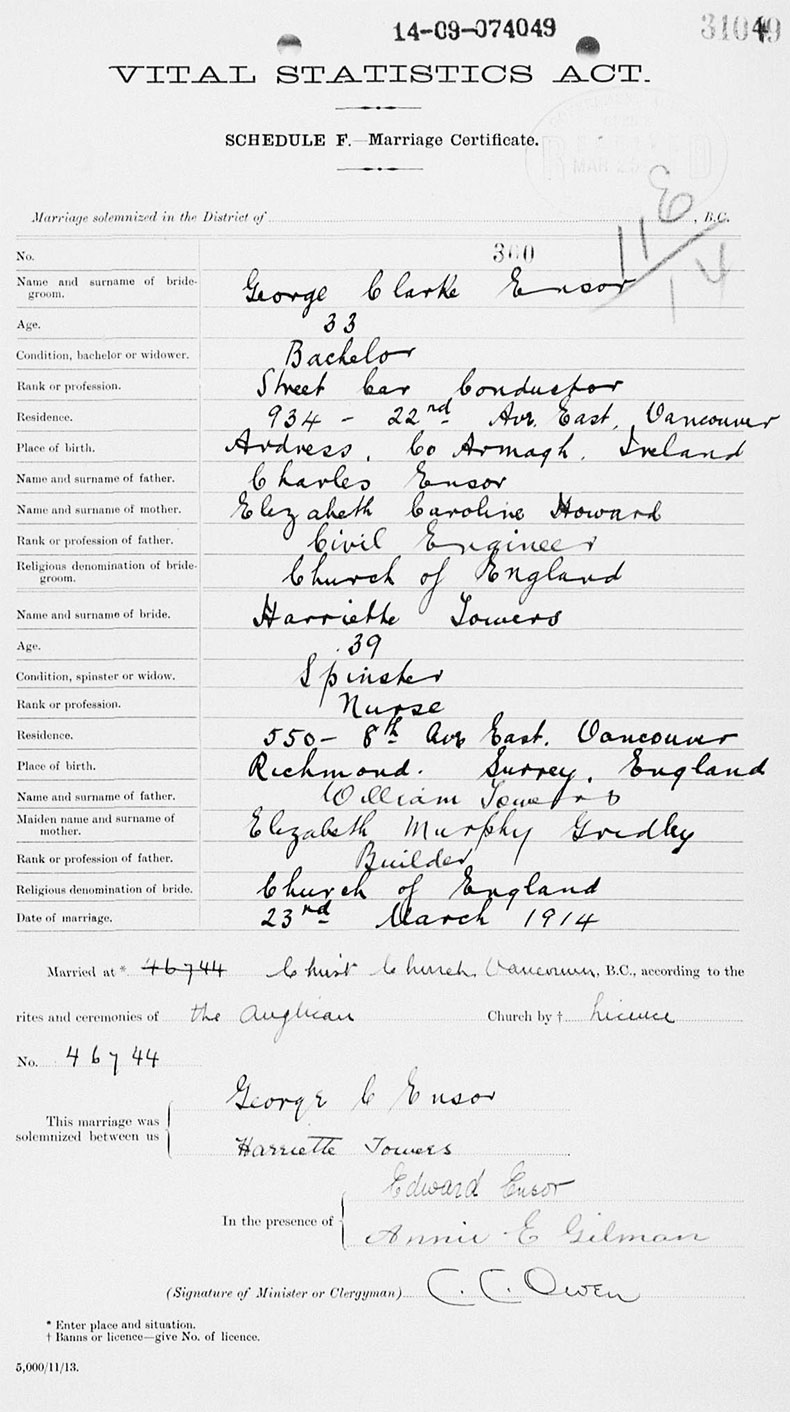 14-09-074049
VITAL STATISTICS ACT.
SCHEDULE F.—Marriage Certificate.
MAR 2
Marriage solemnized in the District of , B.C.
11E/14
No. 360
Name and surname of bridegroom. George Clarke Ensor
Age. 33
Condition, bachelor or widower. Bachelor
Rank or profession. Street Car Conductor
Residence. 934 - 22nd Ave. East, Vancouver
Place of birth. Ardress, Co Armagh, Ireland
Name and surname of father. Charles Ensor
Name and surname of mother. Elizabeth Caroline Howard
Rank or profession of father. Civil Engineer
Religious denomination of bridegroom. Church of England
Name and surname of bride. Harriette Towers
Age. 39
Condition, spinster or widow. Spinster
Rank or profession. Nurse
Residence. 550- 8th Ave East. Vancouver
Place of birth. Richmond. Surrey, England
Name and surname of father. William Towers
Maiden name and surname of mother. Elizabeth Murphy Gridley
Rank or profession of father. Builder
Religious denomination of bride. Church of England
Date of marriage. 23rd March 1914
Married at * 46744 Christ Church, Vancouver, B.C., according to the
rites and ceremonies of the Anglican Church by † Licence
No. 46744
This marriage was solemnized between us
George C Ensor
Harriette Towers
In the presence of
Edward Ensor
Annie E Gilman
(Signature of Minister or Clergyman) C. C. Owen
* Enter place and situation.
† Banns or licence—give No. of licence.
5,000/11/13.